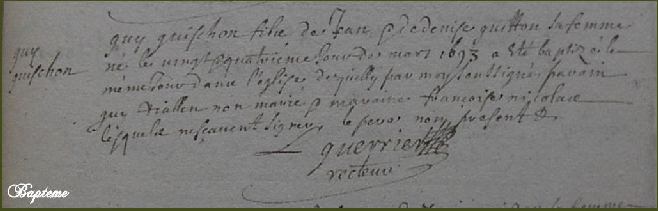 guy
guischon
guy guischon filie de Jean & de denise guitton sa femme
né le vingt & quatriéme Jour de mars 1693 a eté baptizé le
même Jour dans l'église de par moy soussigné parain
guy non marié & maraine françoise nicolace
lesquels ne sçavent signer le pere non present &
guerrier
recteur
Bapteme